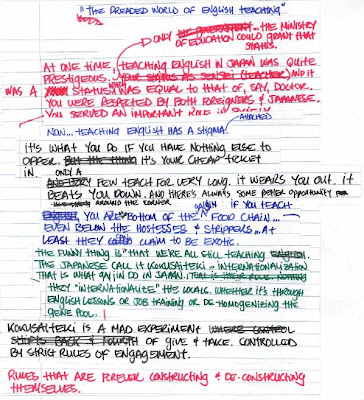 "THE DREADED WORLD OF ENGLISH TEACHING"
ONLY THE GOVERNMENT... THE MINISTRY
OF EDUCATION COULD GRANT THAT
STATUS.
AT ONE TIME, TEACHING ENGLISH IN JAPAN WAS QUITE
PRESTIGEOUS. YOUR STATUS AS SENSEI (TEACHER) AND IT
WAS A STATUS WAS EQUAL TO THAT OF, SAY, DOCTOR.
YOU WERE RESPECTED BY BOTH FOREIGNERS & JAPANESE.
YOU SERVED AN IMPORTANT ROLE IN SOCIETY
NOW... TEACHING ENGLISH HAS A STIGMA.
ATTACHED
IT'S WHAT YOU DO IF YOU HAVE NOTHING ELSE TO
OFFER. BUT THE THING IT'S YOUR CHEAP TICKET
IN. ONLY A
FEW TEACH FOR VERY LONG. IT WEARS YOU OUT. IT
BEATS YOU DOWN. AND THERE'S ALWAYS SOME BETTER OPPORTUNITY
AROUND THE CORNER
YOU ARE BOTTOM OF THE FOOD CHAIN... IF YOU TEACH
EVEN BELOW THE HOSTESSES & STRIPPERS... AT
LEAST THEY CAN CLAIM TO BE EXOTIC.
THE FUNNY THING IS THAT WE'RE ALL STILL TEACHING ENGLISH.
THE JAPANESE CALL IT KOKUSAITEKI = INTERNATIONALIZATION
THAT IS WHAT GAIJIN DO IN JAPAN.
THEY "INTERNATIONALIZE" THE LOCALS. WHETHER IT'S THROUGH
ENGLISH LESSONS OR JOB TRAINING OR DE-HOMOGENIZING THE
GENE POOL.
KOKUSAITEKI IS A MAD EXPERIMENT WHERE CONTROL
SHIFTS BACK & FOURTH OF GIVE & TAKE. CONTROLLED
BY STRICT RULES OF ENGAGEMENT.
RULES THAT ARE FOREVER CONSTRUCTING & DE-CONSTRUCTING
THEMSELVES.